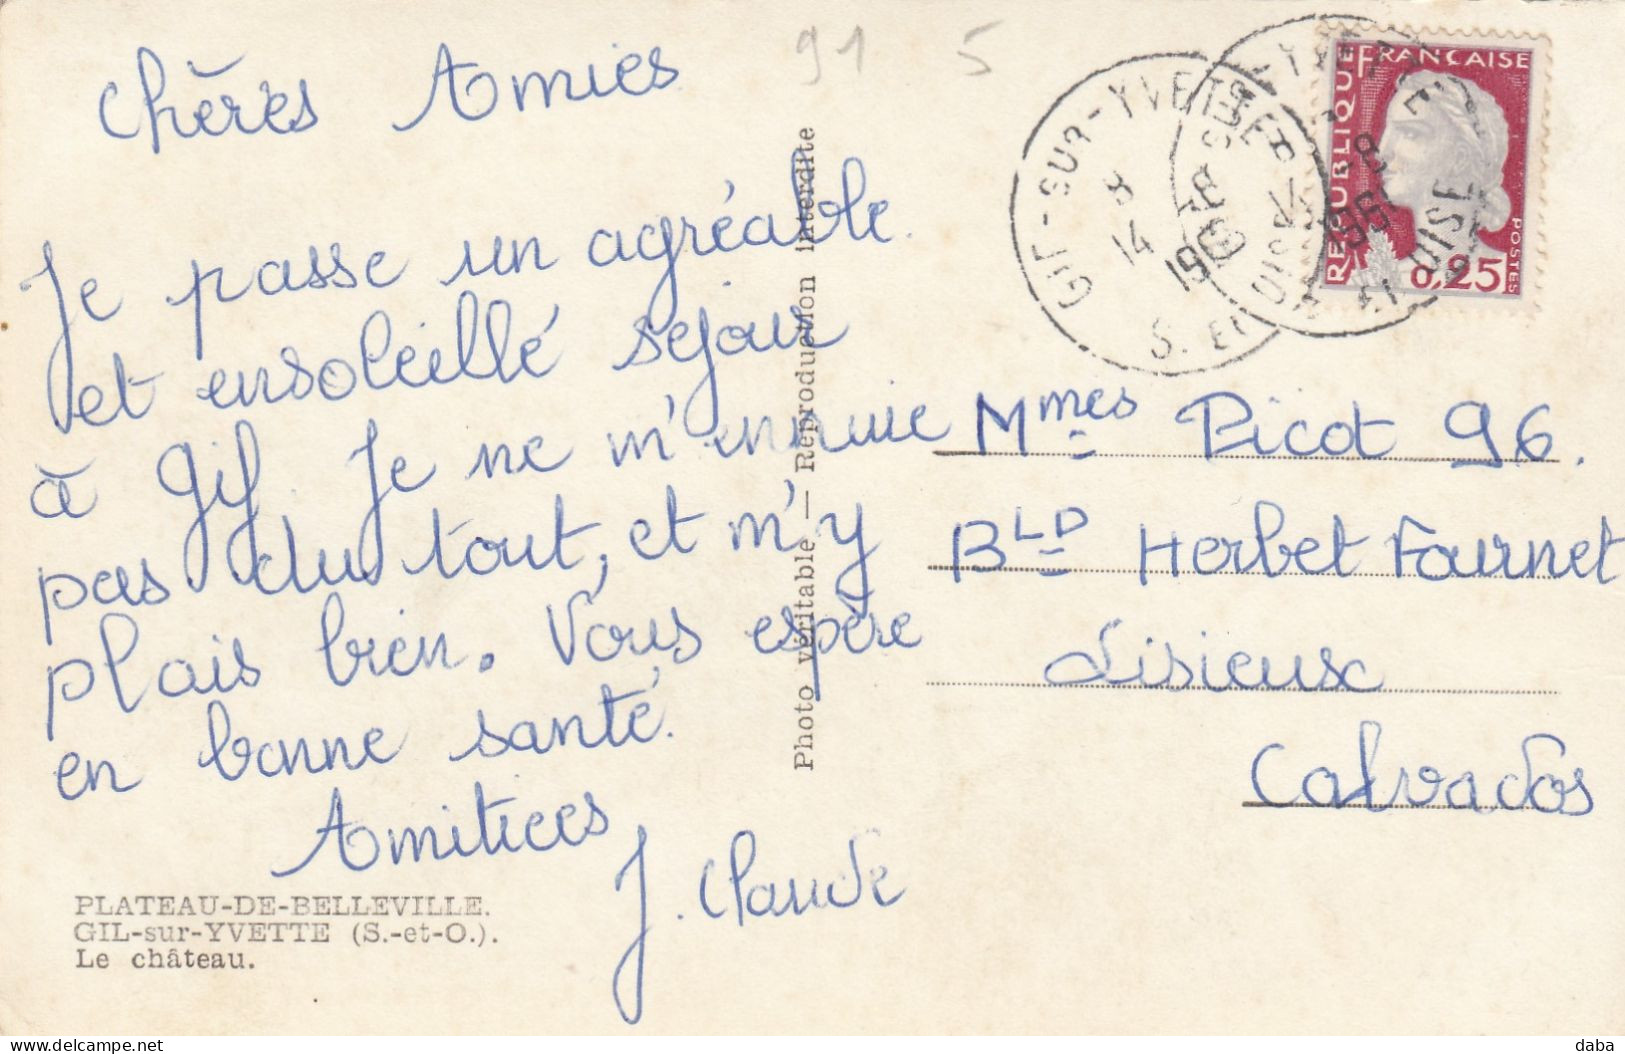 91 5
chères Amies
Je passe un agréable
et ensoleillé séjour
à Gif Je ne m'ennuie
pas du tout, et m'y
plais bien. Vous espère
en bonne santé.
Amitiées
J. Claude
PLATEAU-DE-BELLEVILLE.
GIL-sur-YVETTE (S.-et-O.).
Le château.
Photo véritable — Reproduction interdite
GIF-SUR-YVETTE
8
14
S. ET OISE
RÉPUBLIQUE FRANÇAISE
0,25
POSTES
Mmes Picot 96.
BLD Herbet Fournet
Lisieux
Calvados
daba